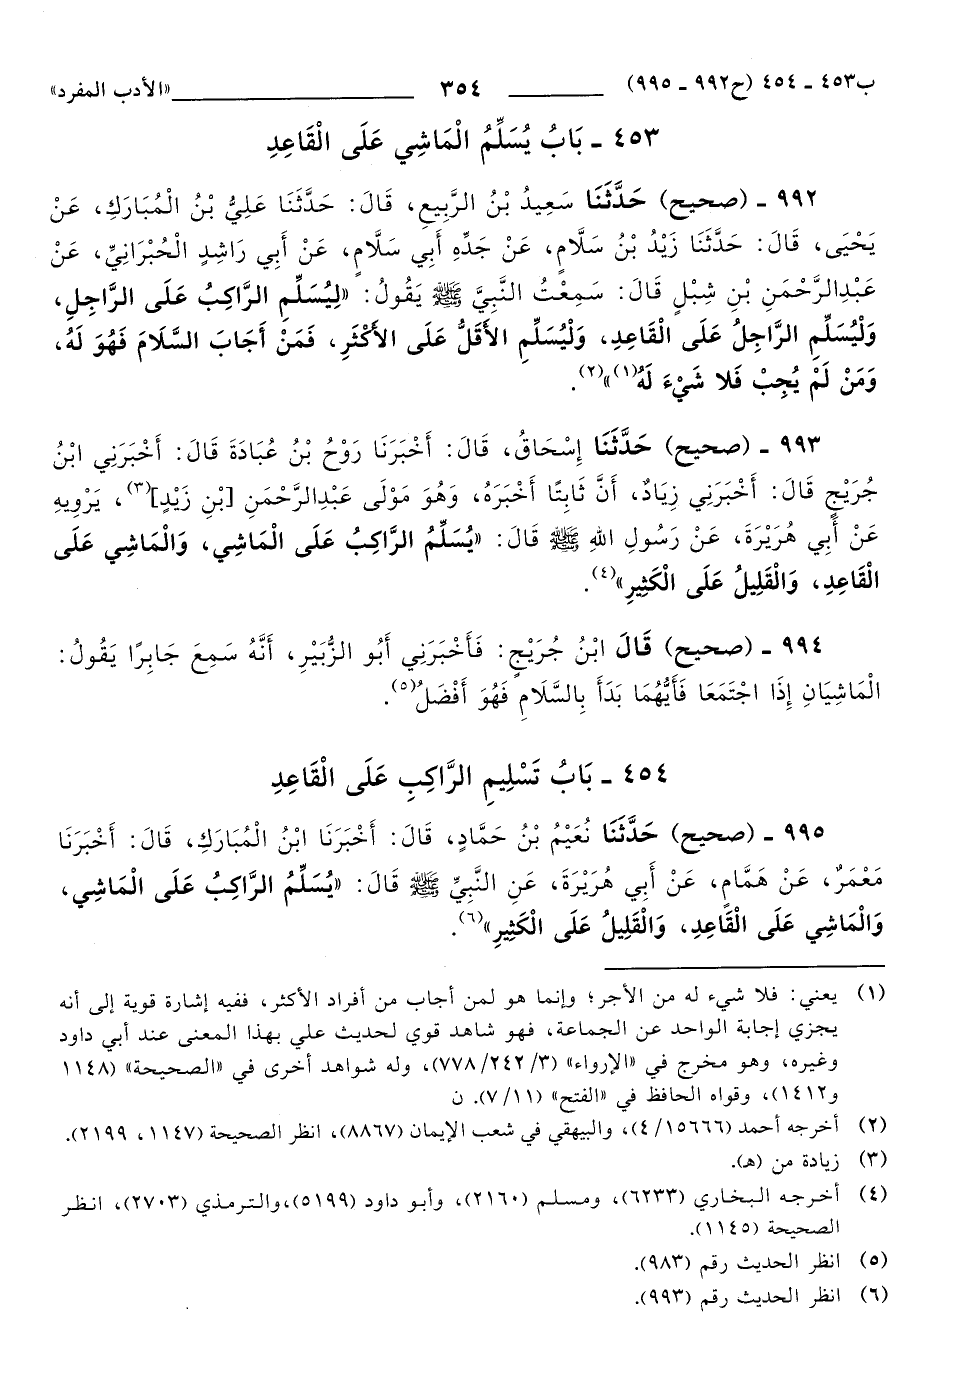 ب٤٥٣ ـ ٤٥٤ (ح٩٩٢ ـ ٩٩٥) ٣٥٤ «الأدب المفرد»
٤٥٣ ـ بَابُ يُسَلِّمُ الْمَاشِي عَلَى الْقَاعِدِ
٩٩٢ ـ (صحيح) حَدَّثَنَا سَعِيدُ بْنُ الرَّبِيعِ، قَالَ: حَدَّثَنَا عَلِيُّ بْنُ الْمُبَارَكِ، عَنْ
يَحْيَى، قَالَ: حَدَّثَنَا زَيْدُ بْنُ سَلَّامٍ، عَنْ جَدِّهِ أَبِي سَلَّامٍ، عَنْ أَبِي رَاشِدٍ الْحُبْرَانِيِّ، عَنْ
عَبْدِالرَّحْمَنِ بْنِ شِبْلٍ قَالَ: سَمِعْتُ النَّبِيَّ ﷺ يَقُولُ: «لِيُسَلِّمِ الرَّاكِبُ عَلَى الرَّاجِلِ،
وَلْيُسَلِّمِ الرَّاجِلُ عَلَى الْقَاعِدِ، وَلْيُسَلِّمِ الأَقَلُّ عَلَى الأَكْثَرِ، فَمَنْ أَجَابَ السَّلَامَ فَهُوَ لَهُ،
وَمَنْ لَمْ يُجِبْ فَلا شَيْءَ لَهُ(١)»(٢).
٩٩٣ ـ (صحيح) حَدَّثَنَا إِسْحَاقُ، قَالَ: أَخْبَرَنَا رَوْحُ بْنُ عُبَادَةَ قَالَ: أَخْبَرَنِي ابْنُ
جُرَيْجٍ قَالَ: أَخْبَرَنِي زِيَادٌ، أَنَّ ثَابِتًا أَخْبَرَهُ، وَهُوَ مَوْلَى عَبْدِالرَّحْمَنِ [بْنِ زَيْدٍ](٣)، يَرْوِيهِ
عَنْ أَبِي هُرَيْرَةَ، عَنْ رَسُولِ اللهِ ﷺ قَالَ: «يُسَلِّمُ الرَّاكِبُ عَلَى الْمَاشِي، وَالْمَاشِي عَلَى
الْقَاعِدِ، وَالْقَلِيلُ عَلَى الْكَثِيرِ»(٤).
٩٩٤ ـ (صحيح) قَالَ ابْنُ جُرَيْجٍ: فَأَخْبَرَنِي أَبُو الزُّبَيْرِ، أَنَّهُ سَمِعَ جَابِرًا يَقُولُ:
الْمَاشِيَانِ إِذَا اجْتَمَعَا فَأَيُّهُمَا بَدَأَ بِالسَّلَامِ فَهُوَ أَفْضَلُ(٥).
٤٥٤ ـ بَابُ تَسْلِيمِ الرَّاكِبِ عَلَى الْقَاعِدِ
٩٩٥ ـ (صحيح) حَدَّثَنَا نُعَيْمُ بْنُ حَمَّادٍ، قَالَ: أَخْبَرَنَا ابْنُ الْمُبَارَكِ، قَالَ: أَخْبَرَنَا
مَعْمَرٌ، عَنْ هَمَّامٍ، عَنْ أَبِي هُرَيْرَةَ، عَنِ النَّبِيِّ ﷺ قَالَ: «يُسَلِّمُ الرَّاكِبُ عَلَى الْمَاشِي،
وَالْمَاشِي عَلَى الْقَاعِدِ، وَالْقَلِيلُ عَلَى الْكَثِيرِ»(٦).
(١) يعني: فلا شيء له من الأجر؛ وإنما هو لمن أجاب من أفراد الأكثر، ففيه إشارة قوية إلى أنه
يجزي إجابة الواحد عن الجماعة، فهو شاهد قوي لحديث علي بهذا المعنى عند أبي داود
وغيره، وهو مخرج في «الإرواء» (٣/ ٢٤٢/ ٧٧٨)، وله شواهد أخرى في «الصحيحة» (١١٤٨
و١٤١٢)، وقواه الحافظ في «الفتح» (١١/ ٧). ن
(٢) أخرجه أحمد (١٥٦٦٦/ ٤)، والبيهقي في شعب الإيمان (٨٨٦٧)، انظر الصحيحة (١١٤٧، ٢١٩٩).
(٣) زيادة من (هـ).
(٤) أخرجه البخاري (٦٢٣٣)، ومسلم (٢١٦٠)، وأبو داود (٥١٩٩)،والترمذي (٢٧٠٣)، انظر
الصحيحة (١١٤٥).
(٥) انظر الحديث رقم (٩٨٣).
(٦) انظر الحديث رقم (٩٩٣).